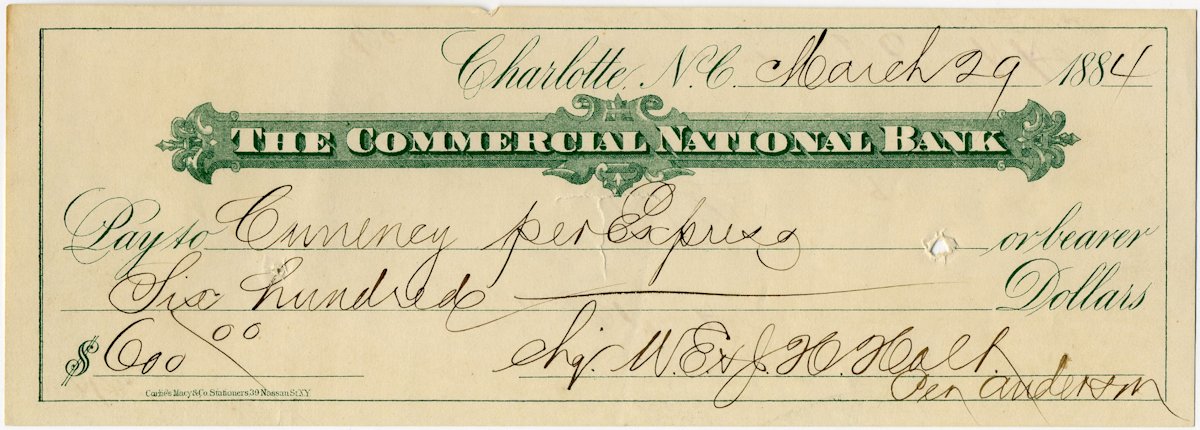 Charlotte, N.C. March 29 1884
THE COMMERCIAL NATIONAL BANK
Pay to Currency per Express or bearer
Six hundred Dollars
$ 600 00
Chg. W. E. & J. H. Holt.
Per Anderson
Corlies Macy & Co. Stationers, 39 Nassau St. N.Y.